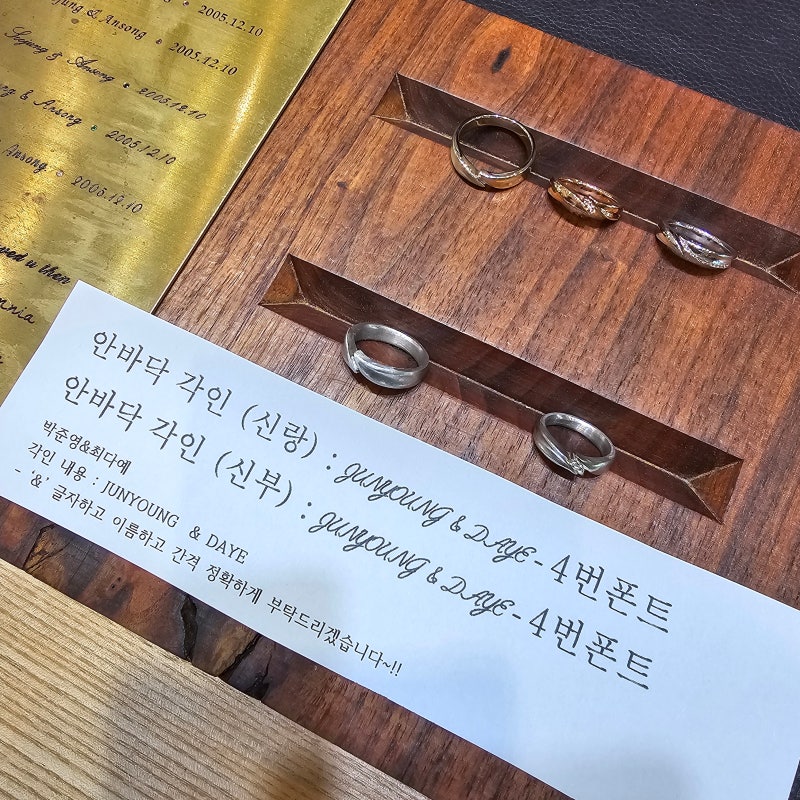 ung & Ansong 2005.12.10
Soojung & Ansong 2005.12.10
ng & Ansong 2005.12.10
Ansong 2005.12.10
u then
안바닥 각인 (신랑) : JUNYOUNG & DAYE - 4번폰트
안바닥 각인 (신부) : JUNYOUNG & DAYE - 4번폰트
박준영&최다예
각인 내용 : JUNYOUNG & DAYE
- '&' 글자하고 이름하고 간격 정확하게 부탁드리겠습니다~!!